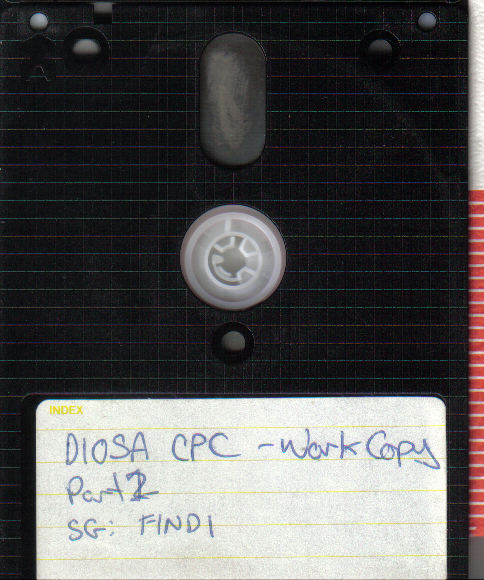 A
INDEX
DIOSA CPC - Work Copy
Part 2
SG: FINDI